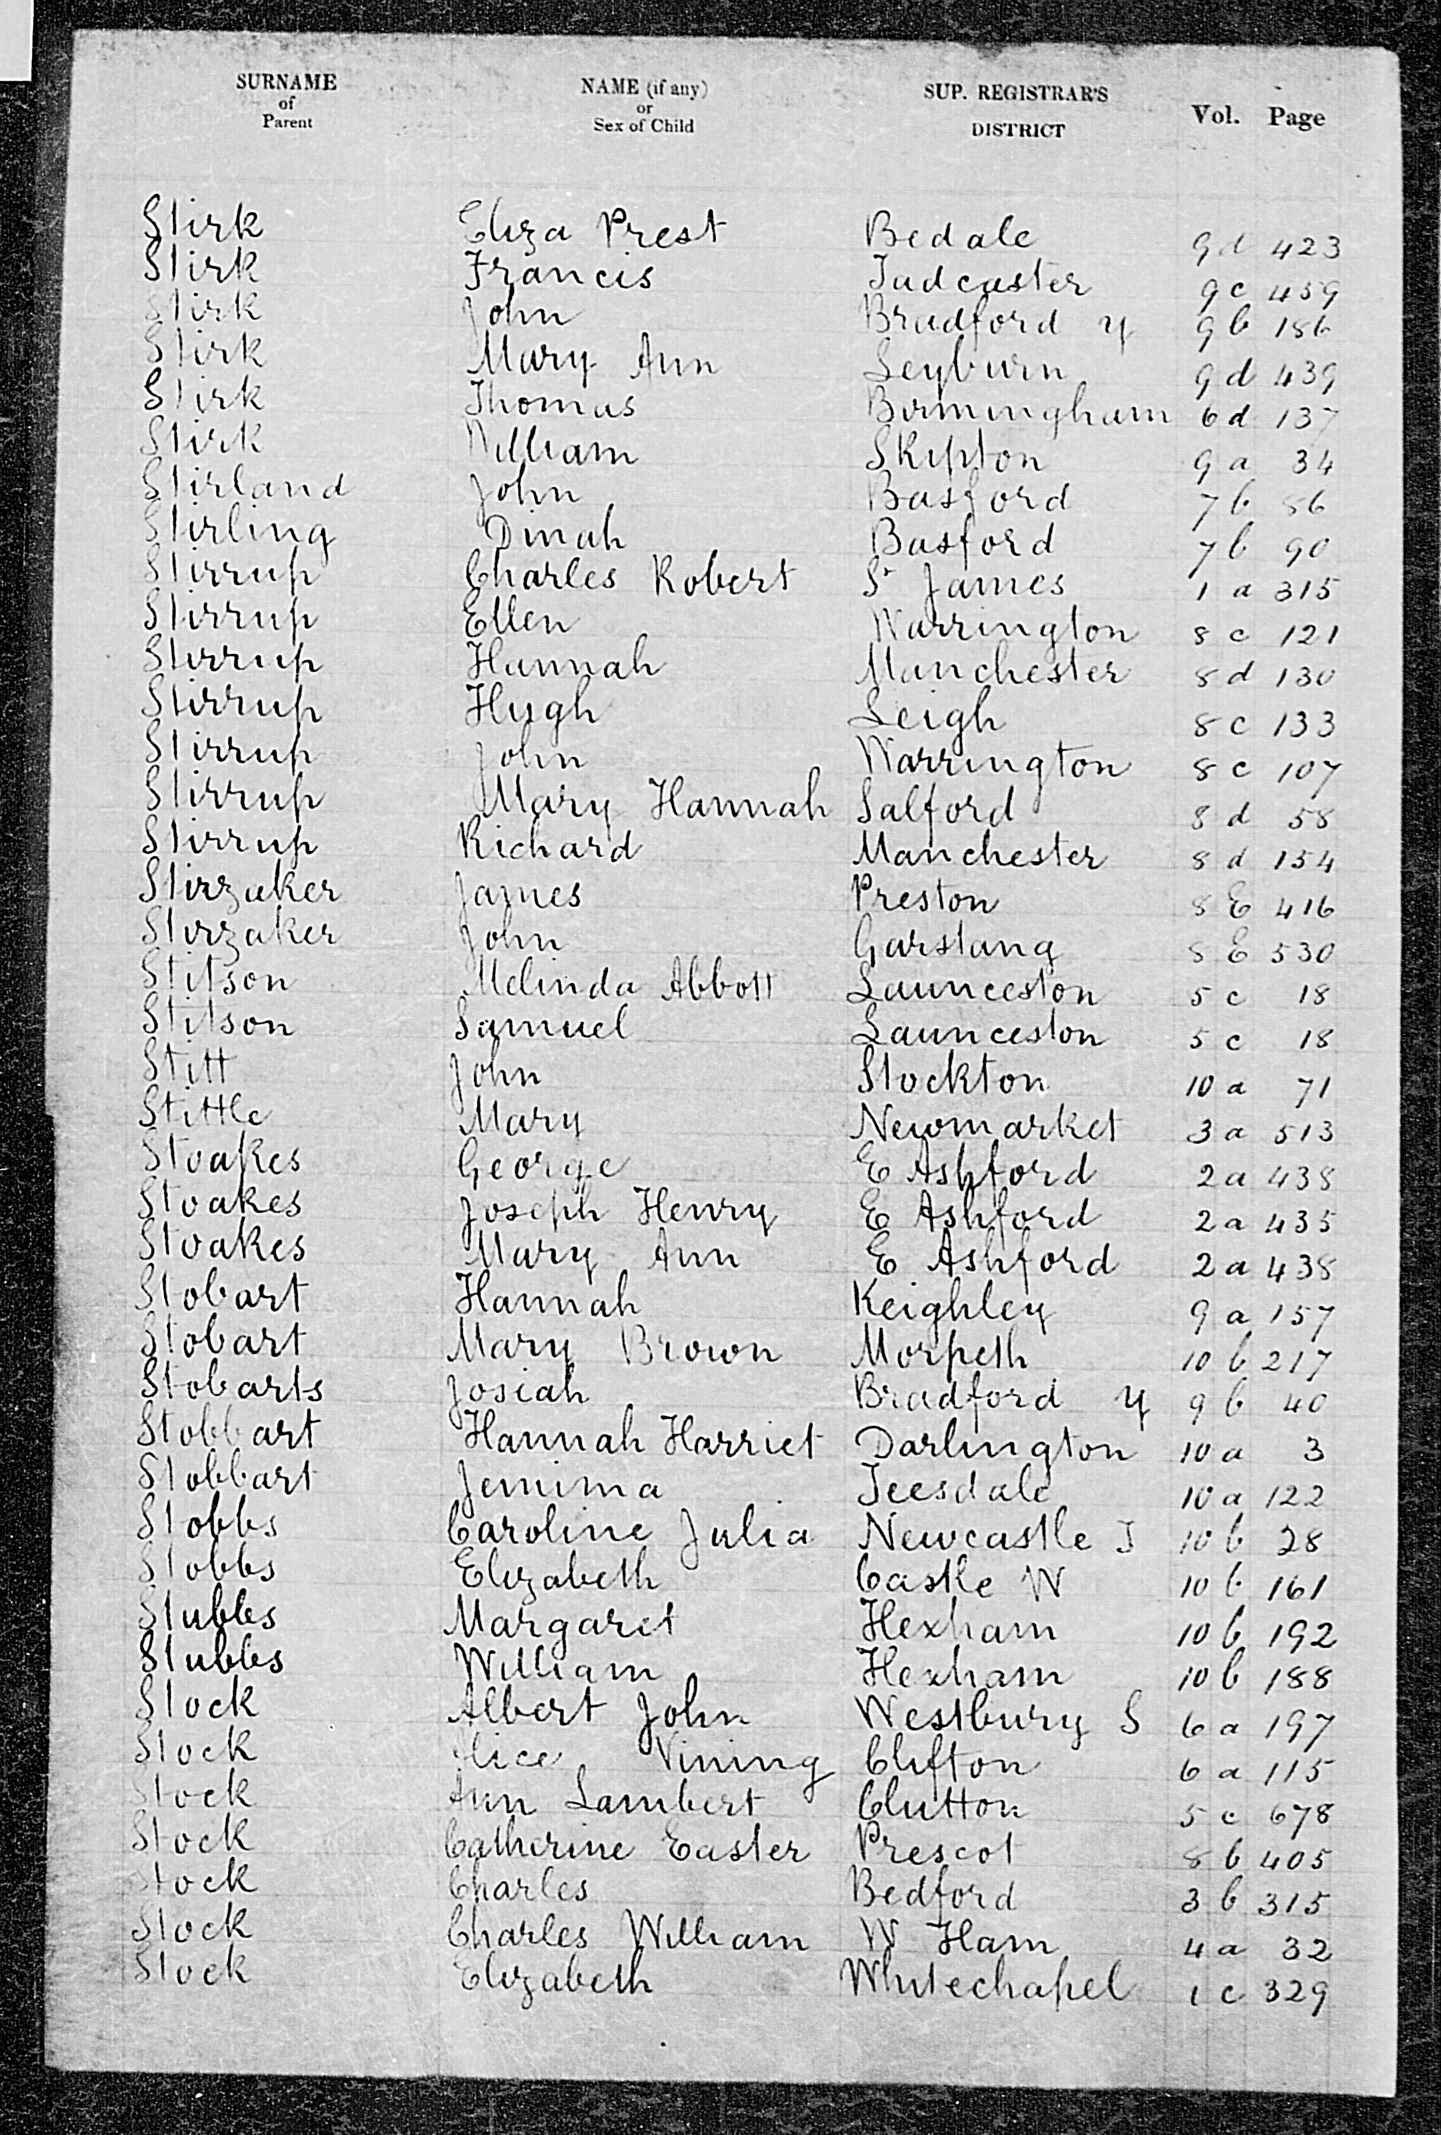 SURNAME of Parent NAME (if any) or Sex of Child SUP. REGISTRAR'S DISTRICT Vol. Page
Stirk Eliza Prest Bedale 9d 423
Stirk Francis Tadcaster 9c 459
Stirk John Bradford Y 9b 186
Stirk Mary Ann Leyburn 9d 439
Stirk Thomas Birmingham 6d 137
Stirk William Skipton 9a 34
Stirland John Basford 7b 86
Stirling Dinah Basford 7b 90
Stirrup Charles Robert St James 1a 315
Stirrup Ellen Warrington 8c 121
Stirrup Hannah Manchester 8d 130
Stirrup Hugh Leigh 8c 133
Stirrup John Warrington 8c 107
Stirrup Mary Hannah Salford 8d 58
Stirrup Richard Manchester 8d 154
Stirzaker James Preston 8E 416
Stirzaker John Garstang 8E 530
Stitson Melinda Abbott Launceston 5c 18
Stitson Samuel Launceston 5c 18
Stitt John Stockton 10a 71
Stittle Mary Newmarket 3a 513
Stoakes George E Ashford 2a 438
Stoakes Joseph Henry E Ashford 2a 435
Stoakes Mary Ann E Ashford 2a 438
Stobart Hannah Keighley 9a 157
Stobart Mary Brown Morpeth 10b 217
Stobarts Josiah Bradford Y 9b 40
Stobbart Hannah Harriet Darlington 10a 3
Stobbart Jemima Teesdale 10a 122
Stobbs Caroline Julia Newcastle T 10b 28
Stobbs Elizabeth Castle W 10b 161
Stubbs Margaret Hexham 10b 192
Stubbs William Hexham 10b 188
Stock Albert John Westbury S 6a 197
Stock Alice Vining Clifton 6a 115
Stock Ann Lambert Clutton 5c 678
Stock Catherine Easter Prescot 8b 405
Stock Charles Bedford 3b 315
Stock Charles William W Ham 4a 32
Stock Elizabeth Whitechapel 1c 329